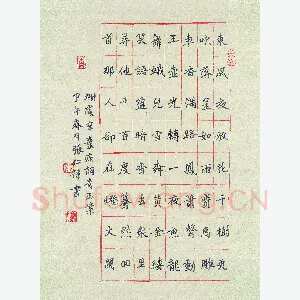 東風夜放花千樹更
吹落星如雨寶馬雕
車香滿路鳳簫聲動
玉壺光轉一夜魚龍
舞蛾兒雪柳黃金縷
笑語盈暗香去眾里
尋他千百度驀然回
首那人卻在燈火闌
珊處宋辛棄疾詞青玉案
甲午春月張仁